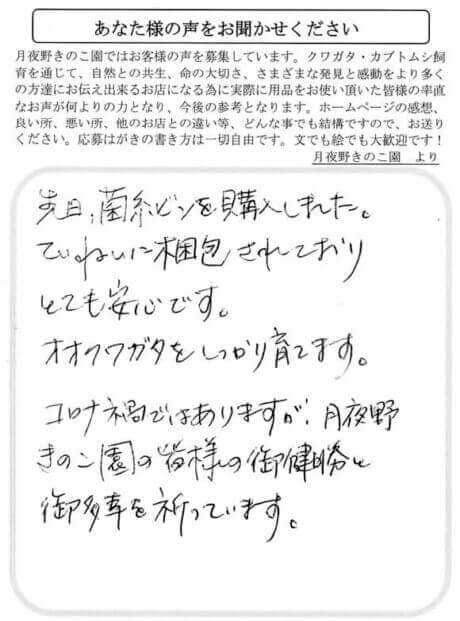 あなた様の声をお聞かせください
月夜野きのこ園ではお客様の声を募集しています。クワガタ・カブトムシ飼
育を通じて、自然との共生、命の大切さ、さまざまな発見と感動をより多く
の方達にお伝え出来るお店になる為に実際に用品をお使い頂いた皆様の率直
なお声が何よりの力となり、今後の参考となります。ホームページの感想、
良い所、悪い所、他のお店との違い等、どんな事でも結構ですので、お送り
ください。応募はがきの書き方は一切自由です。文でも絵でも大歓迎です！
月夜野きのこ園 より
先日、菌糸ビンを購入しました。
ていねいに梱包されており
とても安心です。
オオクワガタをしっかり育てます。
コロナ禍ではありますが、月夜野
きのこ園の皆様の御健勝と
御多幸を祈っています。